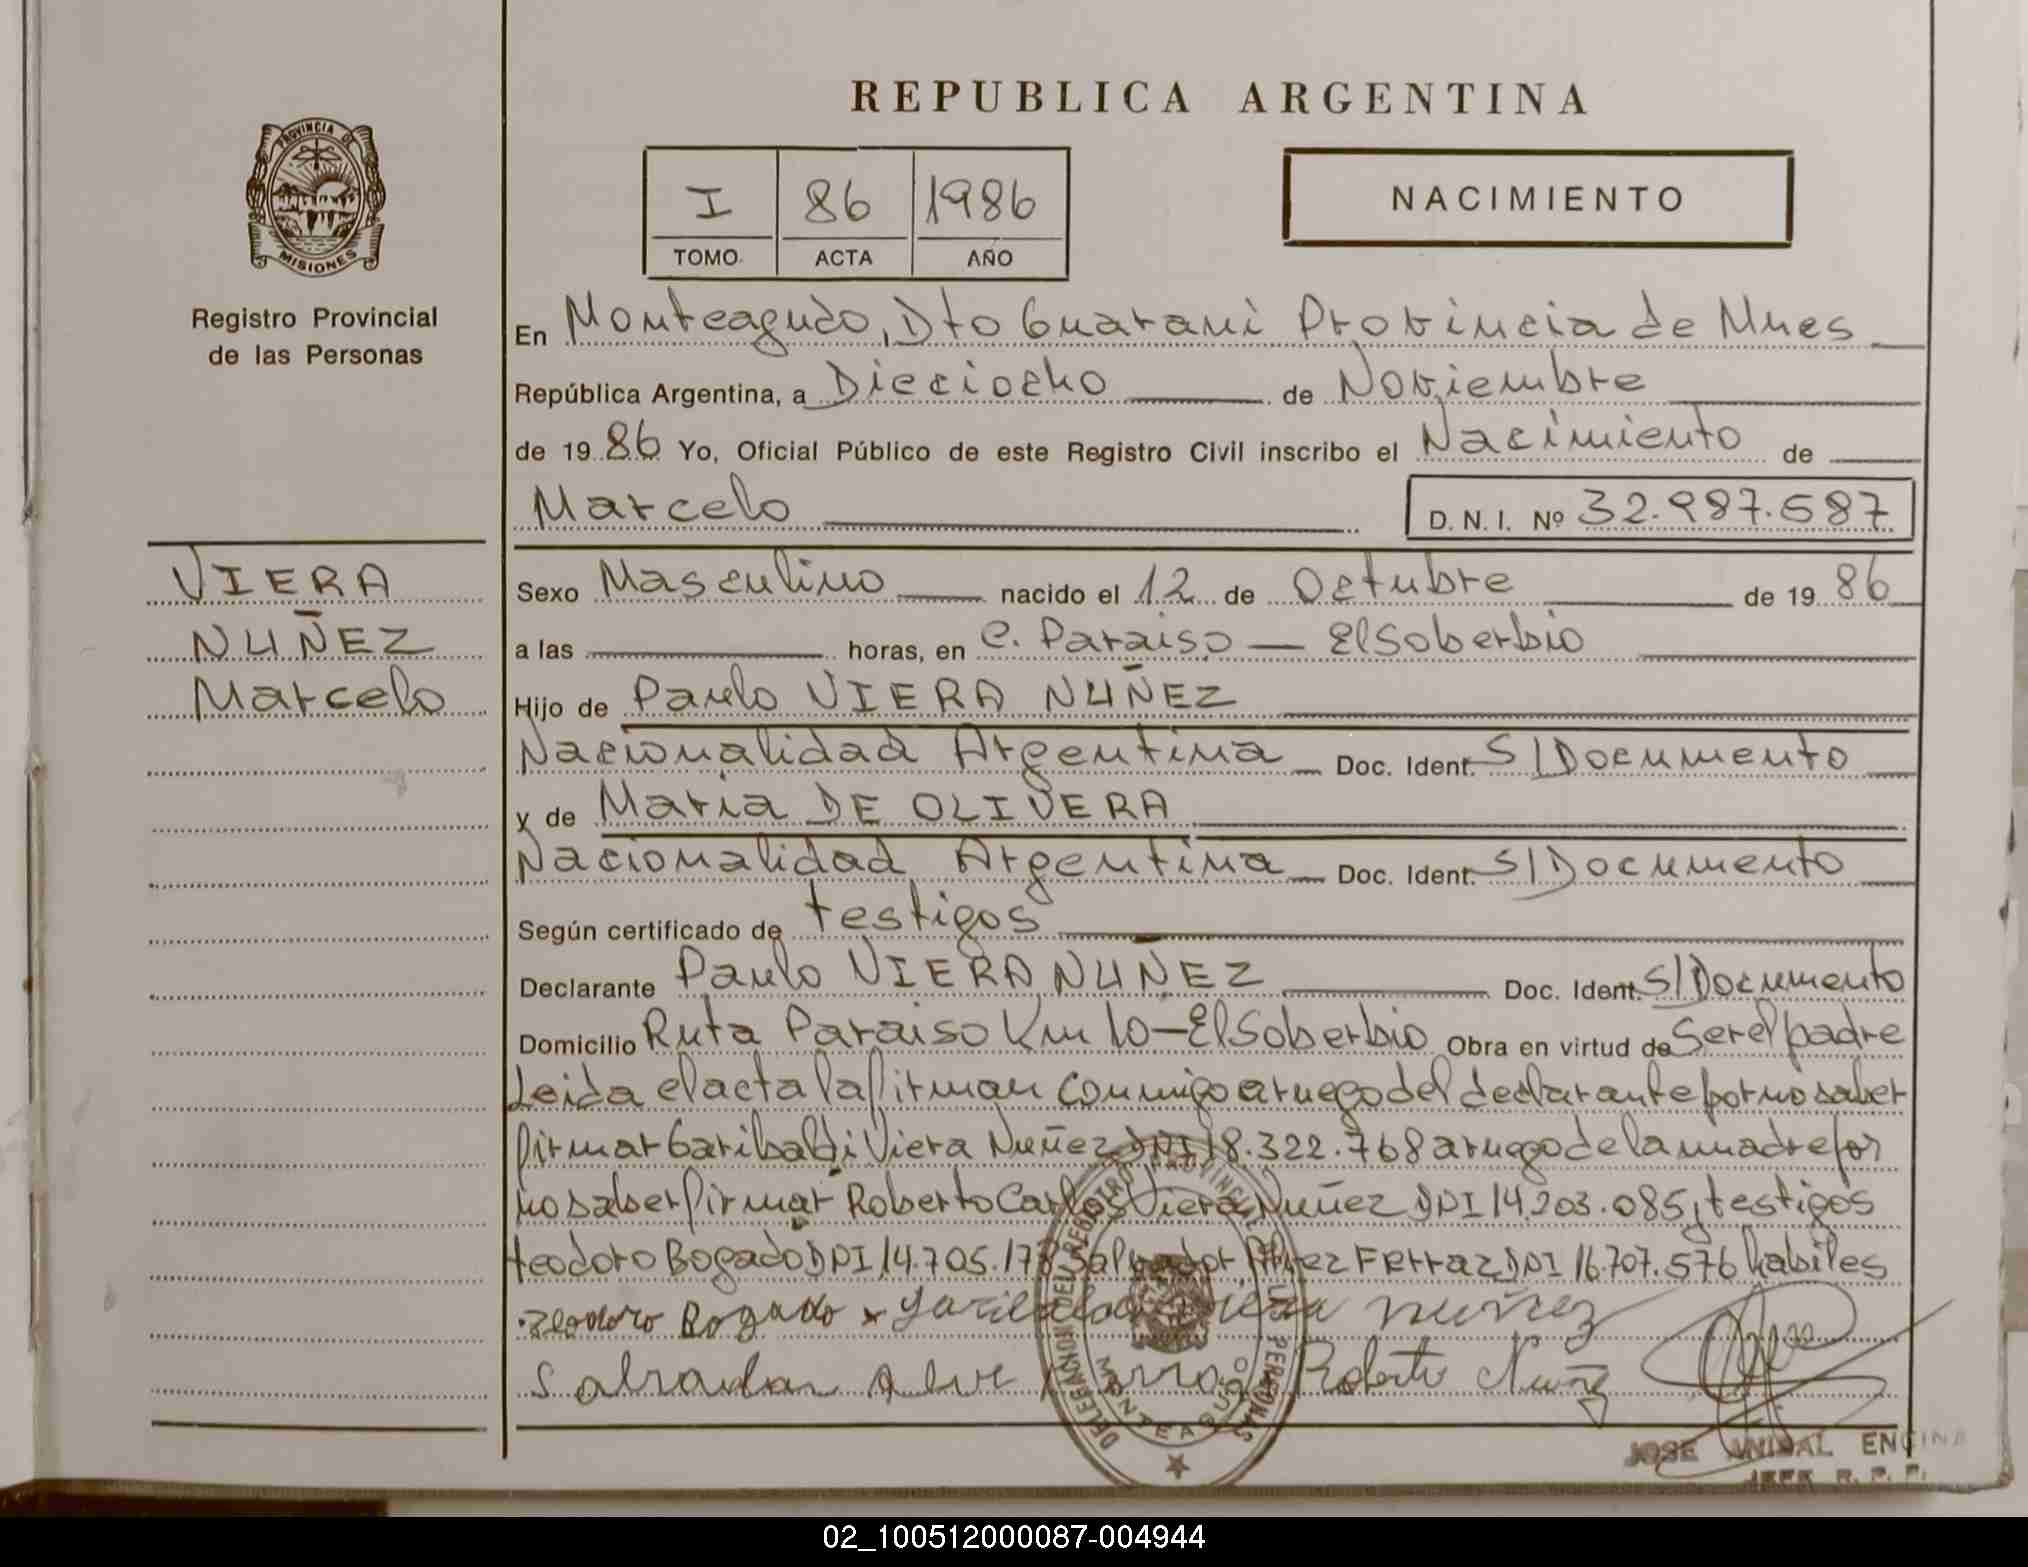 REPUBLICA ARGENTINA
PROVINCIA DE
MISIONES
Registro Provincial
de las Personas
I 86 1986
TOMO ACTA AÑO
NACIMIENTO
En Monteagudo, Dto Guarani Provincia de Mnes
República Argentina, a Dieciocho de Noviembre
de 1986 Yo, Oficial Público de este Registro Civil inscribo el Nacimiento de
Marcelo D. N. I. Nº 32.987.587
VIERA
NUÑEZ
Marcelo
Sexo Masculino nacido el 12 de Octubre de 1986
a las horas, en C. Paraiso — El Soberbio
Hijo de Paulo VIERA NUÑEZ
Nacionalidad Argentina Doc. Ident. S/Documento
y de Maria DE OLIVERA
Nacionalidad Argentina Doc. Ident. S/Documento
Según certificado de testigos
Declarante Paulo VIERA NUÑEZ Doc. Ident. S/Documento
Domicilio Ruta Paraiso Km 10-El Soberbio Obra en virtud de Ser el padre
Leida el acta la firman conmigo a ruego del declarante por no saber
firmar Garibaldi Viera Nuñez DNI 18.322.768 a ruego de la madre por
no saber firmar Roberto Carlos Viera Nuñez DNI 14.203.085, testigos
teodoro Bogado DNI 14.705.178 Salvador Alvez Ferraz DNI 16.707.576 habiles
Teodoro Bogado x Garibaldi Viera Nuñez
Salvador Alve Ferraz Roberto Nuñez
DELEGACION DEL REGISTRO PROVINCIAL DE LAS PERSONAS
MONTEAGUDO
JOSE ANIBAL ENCINA
JEFE R. P. P.
02_100512000087-004944